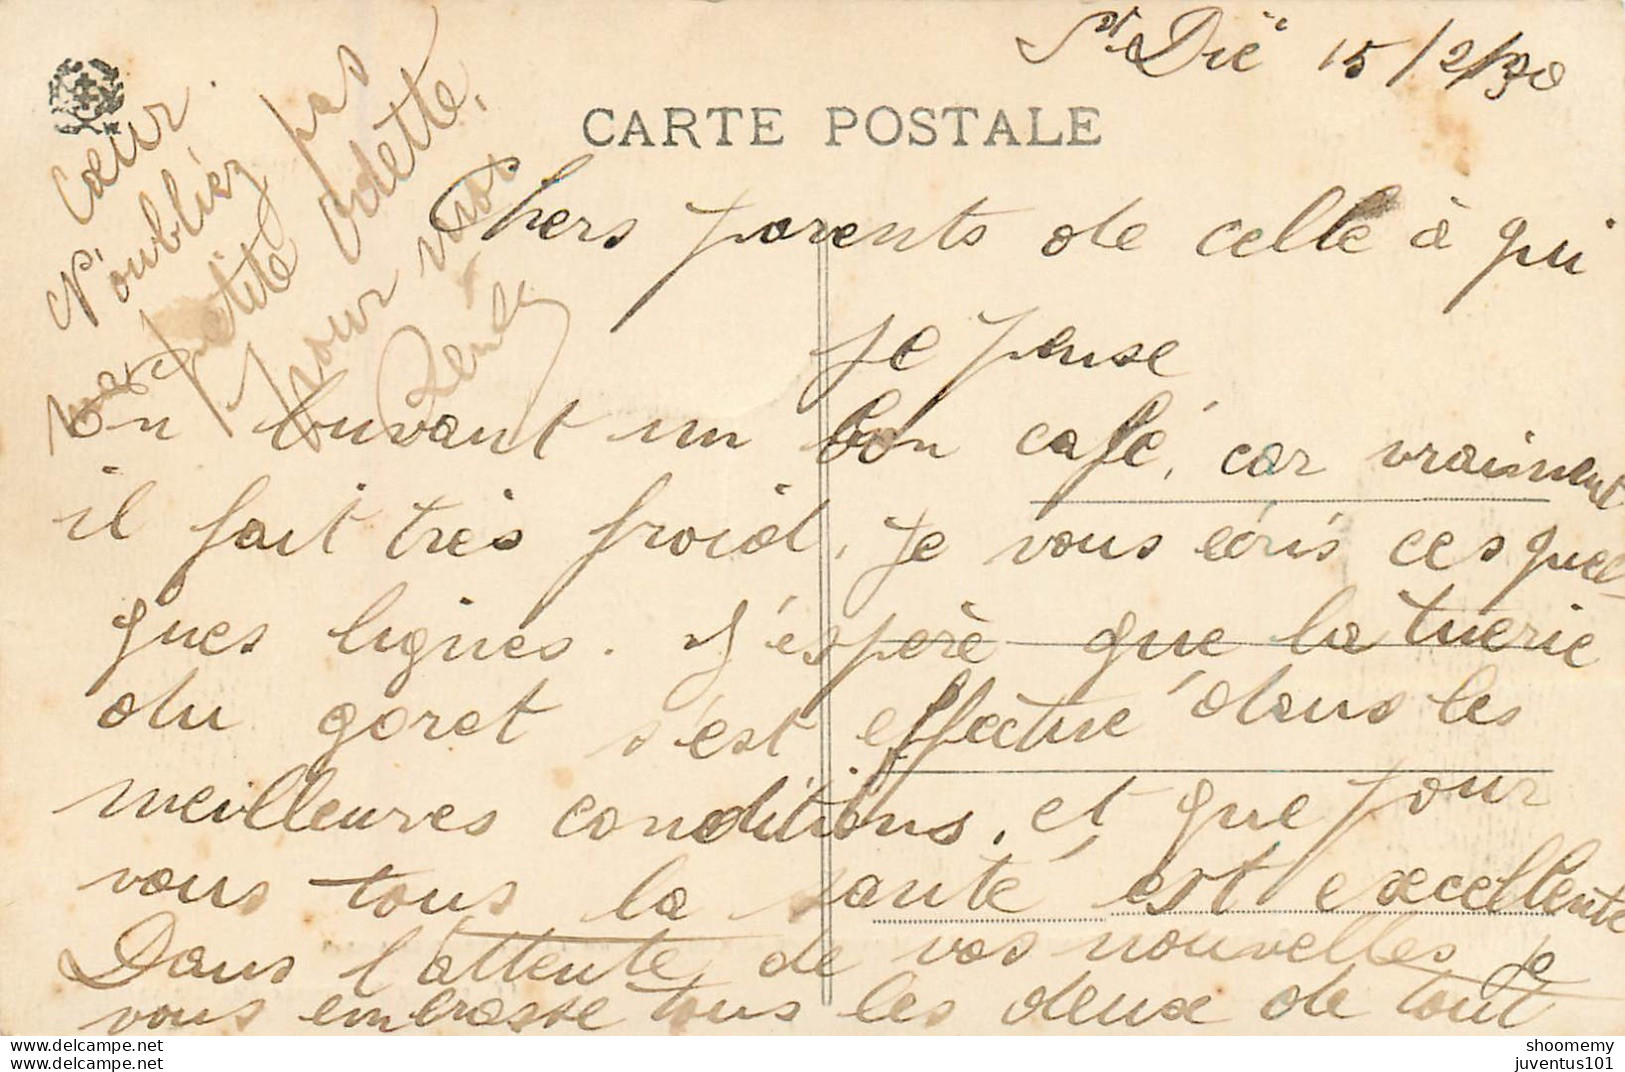 St Dié 15/2/30
CARTE POSTALE
Chers parents de celle à qui
je pense
en buvant un bon café, car vraiment
il fait très froid, je vous écris ces quel-
ques lignes. J'espère que la tuerie
du goret s'est effectué dans les
meilleures conditions, et que pour
vous tous la santé est excellente
Dans l'attente de vos nouvelles je
vous embrasse tous les deux de tout
cœur.
N'oubliez pas
ma petite Odette,
pour moi
René
shoomemy
juventus101